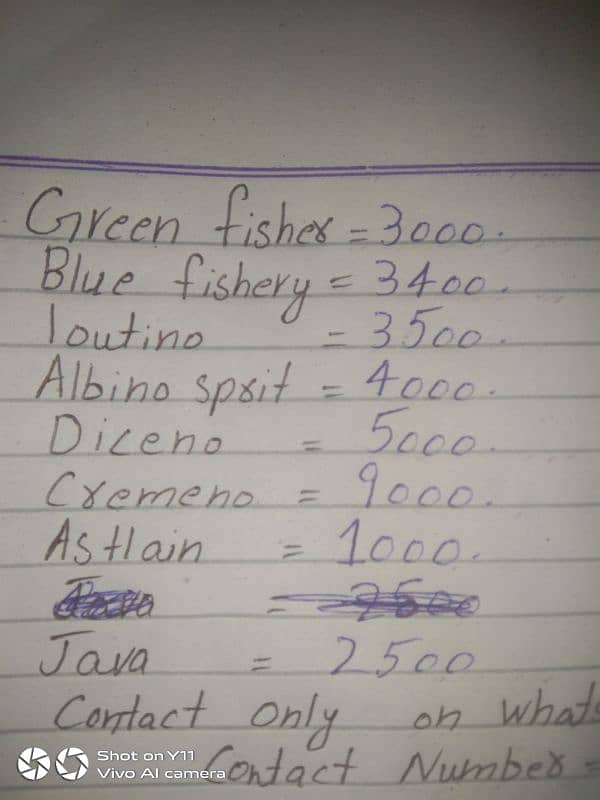 Green fisher = 3000.
Blue fishery = 3400.
loutino = 3500.
Albino sprit = 4000.
Diceno = 5000.
Cremeno = 9000.
Astlain = 1000.
Java = 2500
Java = 2500
Contact only on whats
Contact Number =
Shot on Y11
Vivo AI camera